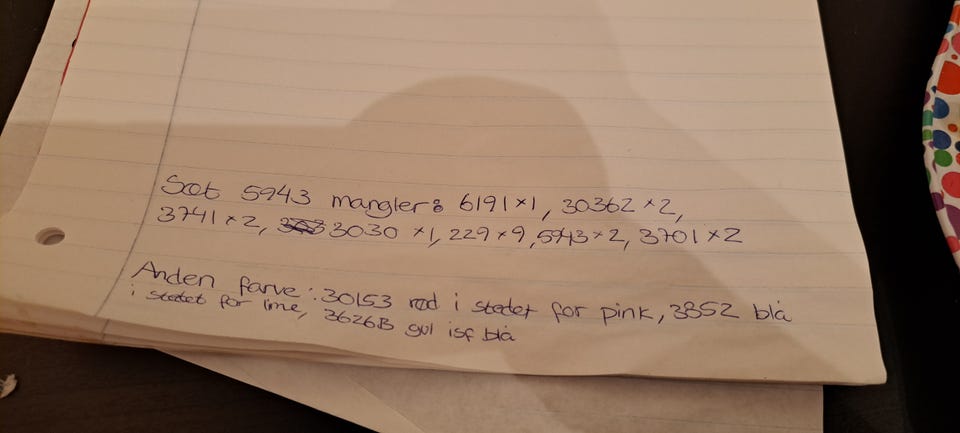 Sæt 5943 mangler: 6191×1, 30362×2,
3741×2, 3030 ×1, 229×9, 5943×2, 3701×2
Anden farve: 30153 rød i stedet for pink, 3852 blå
i stedet for lime, 3626B gul isf blå